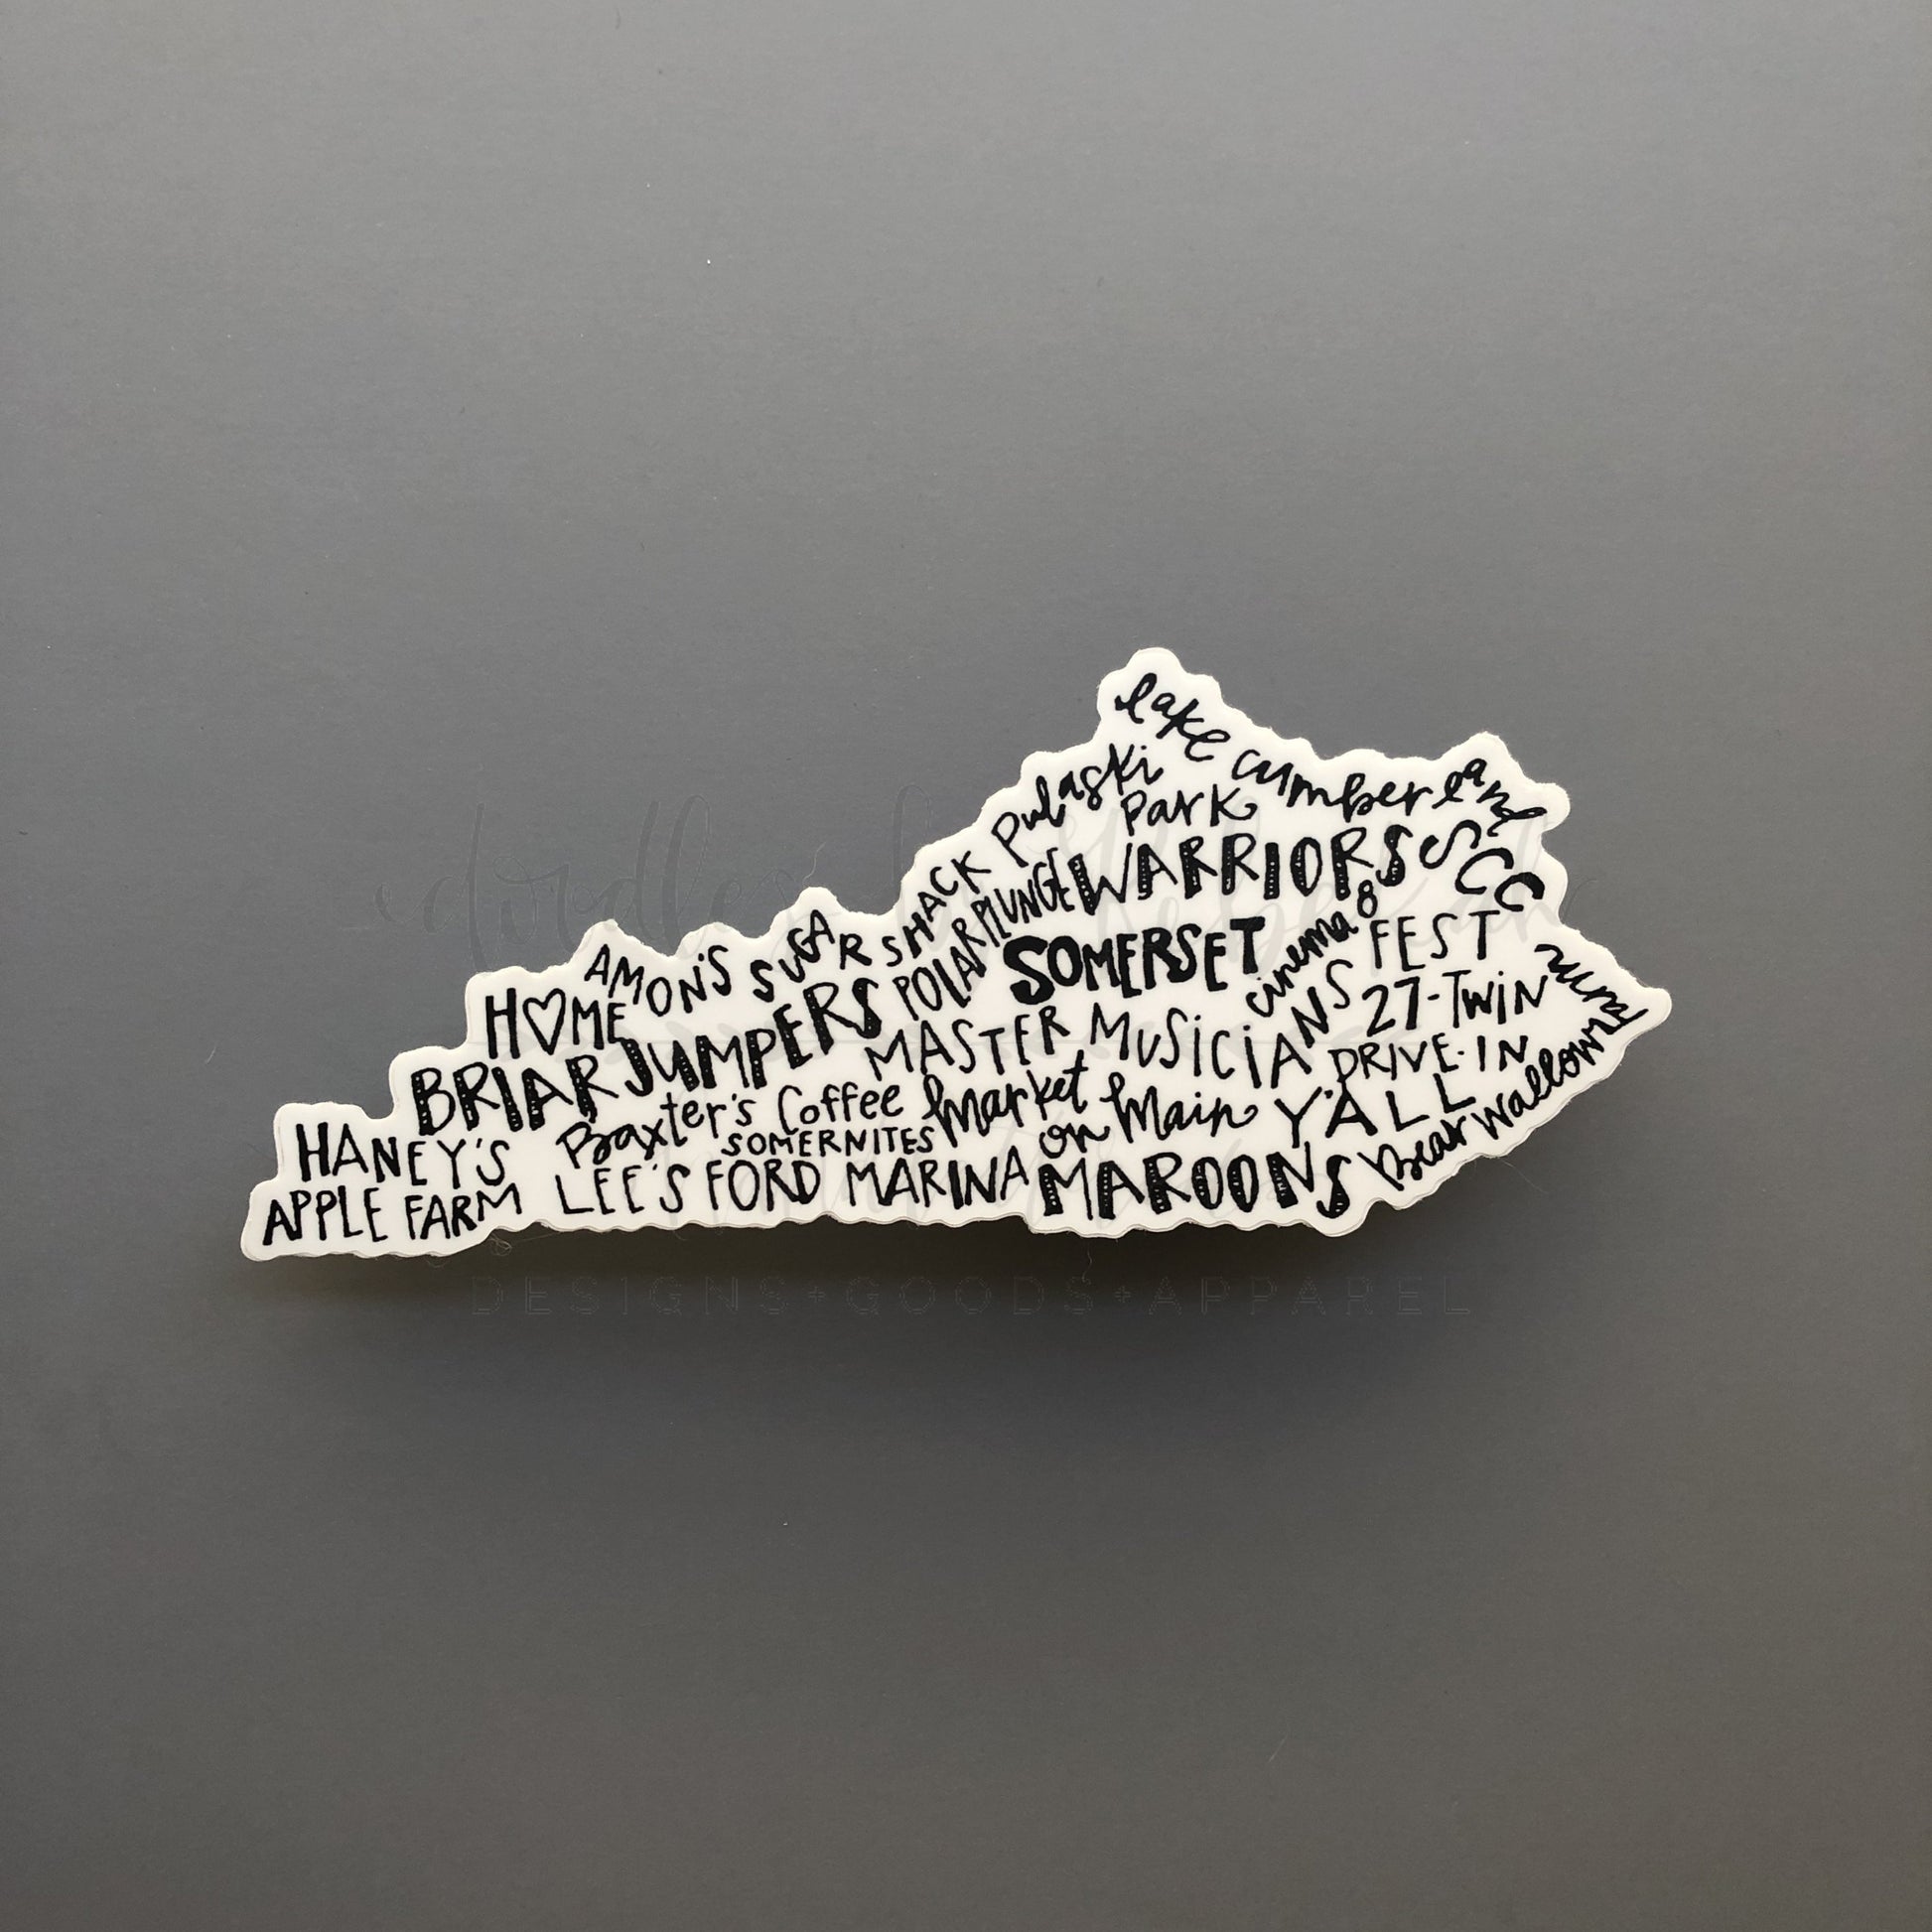 lake cumberland
Pulaski
Park
WARRIORS
SCC
AMON'S SUGAR SHACK
POLAR PLUNGE
SOMERSET
cinema 8
HOME
BRIAR JUMPERS
MASTER MUSICIANS FEST
27-TWIN
DRIVE-IN
rural
HANEY'S
APPLE FARM
Baxter's Coffee
SOMERNITES
Market
on Main
Y'ALL
LEE'S FORD MARINA
MAROONS
Bear Wallow
Farm
DESIGNS+GOODS+APPAREL